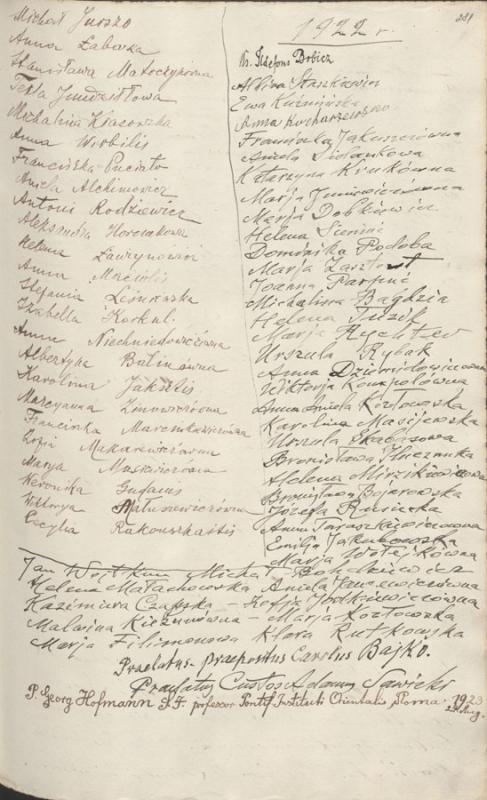 281
Michał Juszko
Anna Labowska
Stanisława Matoczykówna
Tekla Jundziłłowa
Michalina Klasowska
Anna Wirbilis
Franciszka Puciato
Aniela Alchimowicz
Antoni Rodziewicz
Aleksandra
Helena Ławrynowicz
Anna
Stefania Lisowska
Izabella Korkul.
Anna Niechniedowiczówna
Albertyna Balinówna
Karolina Jaksztis
Marcyanna Zinowiczówna
Franciszka Marcinkiewiczówna
Zofia Makarewiczówna
Marya Maskiewiczowa
Weronika Gudanis
Wiktorya Matuszewiczówna
Cecylia Rakowszkaitis
1922 r.
Ks. Ildefons Bobicz
Albina Staszkiewicz
Ewa Kuźmińska
Anna Kucharzewska
Franciszka Jakuszewiczówna
Aniela
Katarzyna Krukówna
Marja
Marja Dobkiewicz
Helena Sienić
Dominika Podoba
Marja Zasztowt
Joanna Parfinć
Michalina Bagdzia
Helena Juzof
Marja Rychter
Urszula Rybak
Anna Dziemidowiczowa
Wiktorja Konopolówna
Anna Aniela Kozłowska
Karolina Masijewska
Urszula Skabasowa
Bronisława
Helena Mirzikiewiczowa
Bronisława Bojarowska
Józefa
Anna Taraszkiewiczowa
Emilja Jakubowska
Marja Wołejkówna
Jan Wojtkun Michał Bohdziewicz
Helena Małachowska Aniela
Kazimiera Czapska - Zofja Ipolkiewiczówna
Malwina Kiezunówna - Marja Kozłowska
Marja Filimonowa Klara Rutkowska
Praelatus-praepositus Carolus Bajko.
Praelatus Custos Adamus Sawicki
P. Georg Hofmann S.J. professor Pontif. Instituti Orientalis, Roma. 1923
Aug.